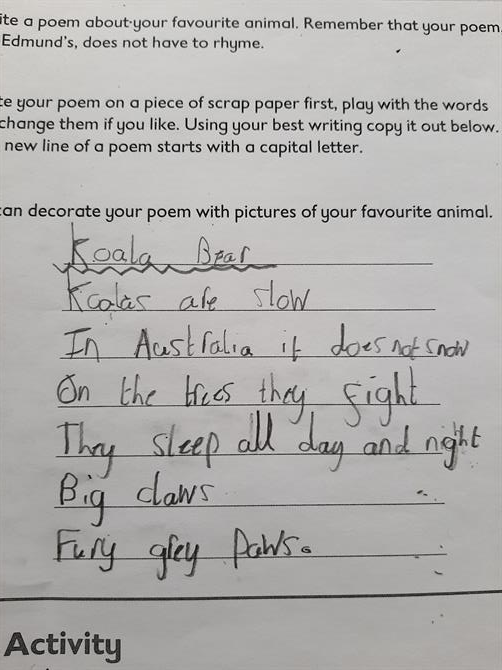 ite a poem about your favourite animal. Remember that your poem
Edmund's, does not have to rhyme.
te your poem on a piece of scrap paper first, play with the words
change them if you like. Using your best writing copy it out below.
new line of a poem starts with a capital letter.
can decorate your poem with pictures of your favourite animal.
Koala Bear
Koalas are slow
In Australia it does not snow
On the trees they fight
They sleep all day and night
Big claws
Fury grey paws.
Activity